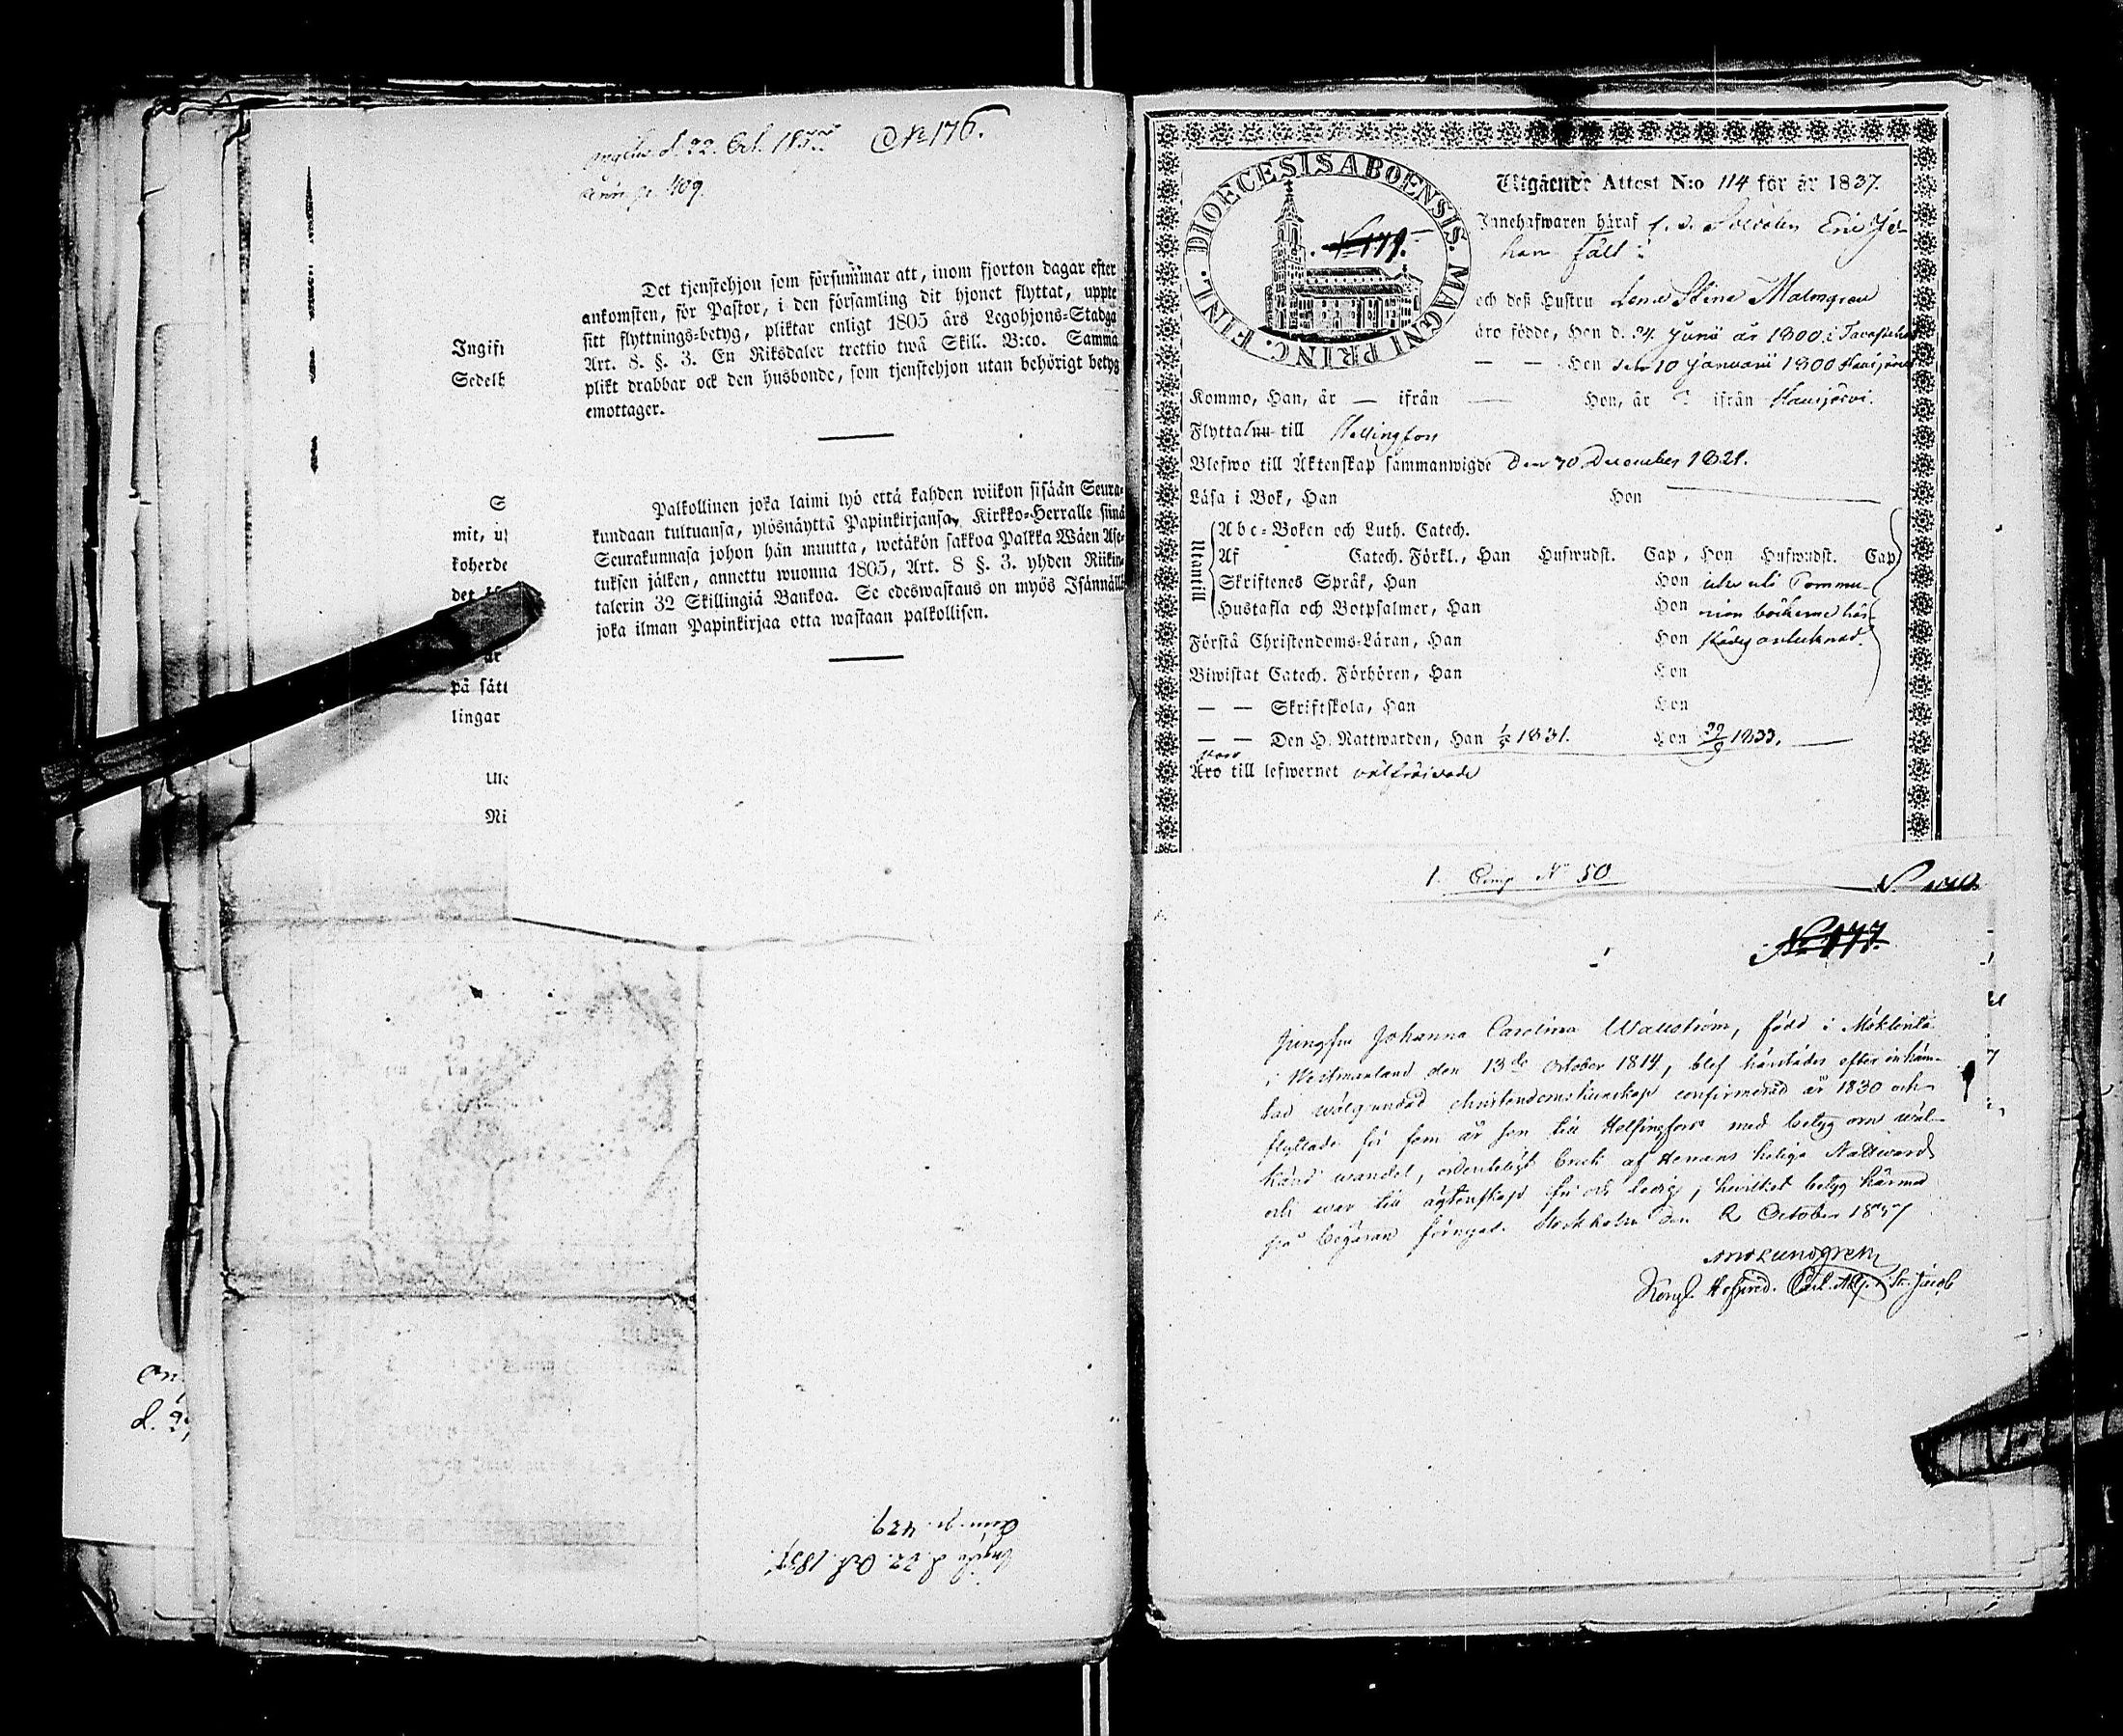 d. 22. Oct. 1837 No 176.
409.
Det tjenstehjon som försummar att, inom fjorton dagar efter
ankomsten, för Pastor, i den församling dit hjonet flyttat, uppte
sitt flyttnings-betyg, pliktar enligt 1805 års Legohjons-Stadga
Art. 8. §. 3. En Riksdaler trettio twå Skill. B:co. Samma
plikt drabbar ock den husbonde, som tjenstehjon utan behörigt betyg
emottager.
Ingift
Sedelh
Palkollinen joka laimi lyö että kahden wiikon sisään Seura-
kundaan tultuansa, ylösnäyttä Papinkirjansa, Kirkko-Herralle siinä
Seurakunnasa johon hän muutta, wetäkön sakkoa Palkka Wäen Ase-
tuksen jälken, annettu wuonna 1805, Art. 8 §. 3. yhden Riikin-
talerin 32 Skillingiä Bankoa. Se edeswastaus on myös Isännällä
joka ilman Papinkirjaa otta wastaan palkollisen.
S
mit, u
koherde
det
är
på sätt
lingar
Ni
d. 22. Oct. 1837.
429
DIOECESIS ABOENSIS. MAGNI PRINC. FINL.
Utgående Attest N:o 114 för år 1837.
Innehafwaren häraf f. d. Soldaten Eric Jo-
han Fält
och deß Hustru Lena Stina Malmgren
äro födde, Han d. 24 Junii år 1800 i
— — Hon den 10 Januarii 1800 Hausjärvi
Kommo, Han, år — ifrån — Hon, år ? ifrån Hausjärvi.
Flytta nu till Helsingfors
Blefwo till Äktenskap sammanwigde den 30 December 1821.
Läsa i Bok, Han Hon
Utantill
Abc-Boken och Luth. Catech.
Af Catech. Förkl., Han Hufwudst. Cap, Hon Hufwudst. Cap
Skriftenes Språk, Han Hon uti Commu-
Hustafla och Botpsalmer, Han Hon nion böckerne här-
Första Christendoms-Läran, Han Hon städes antecknad.
Biwistat Catech. Förhören, Han Hon
— — Skriftskola, Han Hon
— — Den H. Nattwarden, Han 1831. Hon 1833.
Äro till lefwernet välfrejdade
1. Comp. No 50
No 177.
Jungfru Johanna Carolina Wallström, född i Möklinta
i Westmanland den 13de October 1814, blef härstädes efter inhäm-
tad wälgrundad christendomskunskap confirmerad år 1830 och
flyttade för fem år sen till Helsingfors med betyg om wäl-
känd wandel, ordenteligt bruk af Herrans heliga Nattward
och war till ägtenskap fri och ledig; hwilket betyg härmed
på begäran förnyas. Stockholm den 2 October 1837
And Lundgren
Kongl. Hofpred. St. Jacob